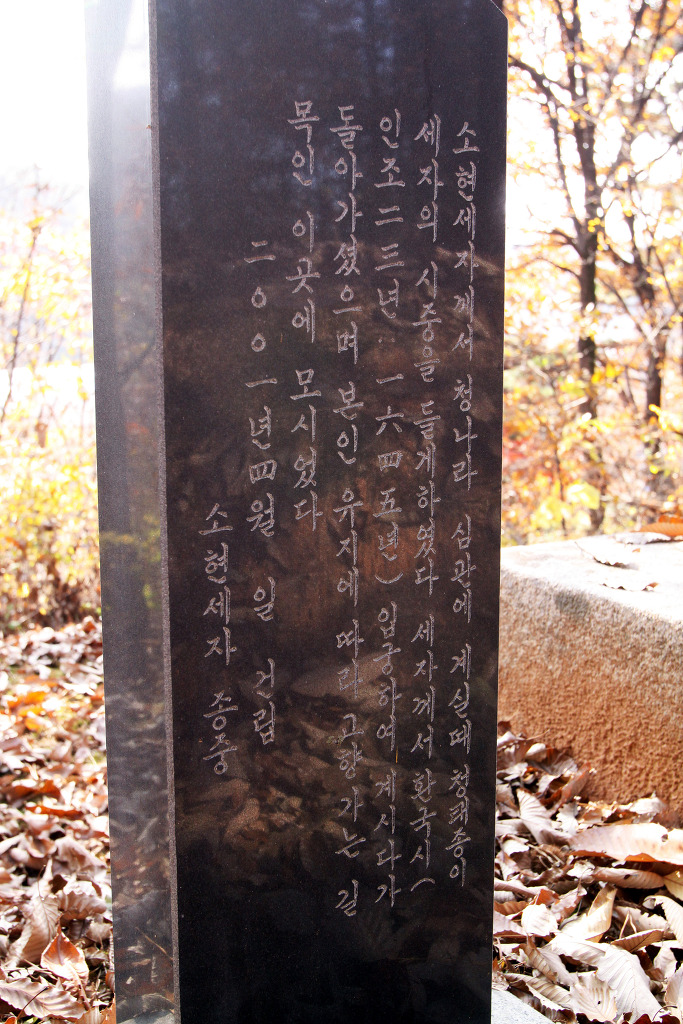 소현세자께서 청나라 심관에 계실때 청태종이
세자의 시중을 들게하였다 세자께서 환국시(
인조二三년 一六四五년) 입궁하여 계시다가
돌아가셨으며 본인 유지에 따라 고향 가는 길
목인 이곳에 모시었다
二〇〇一년 四월 일 건립
소현세자 종중